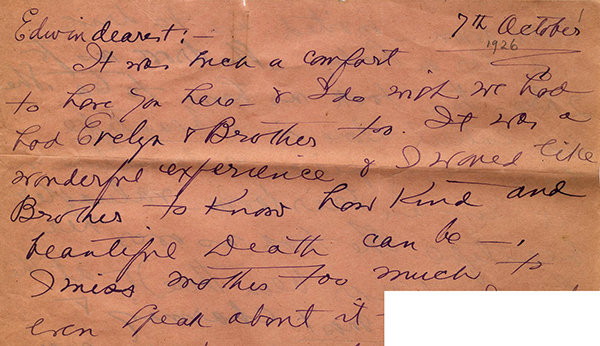 7th October
1926
Edwin dearest! —
It was such a comfort
to have you here — & I do wish we had
had Evelyn & Brother too. It was a
wonderful experience & I would like
Brother to know how kind and
beautiful Death can be —
I miss mother too much to
even speak about it —